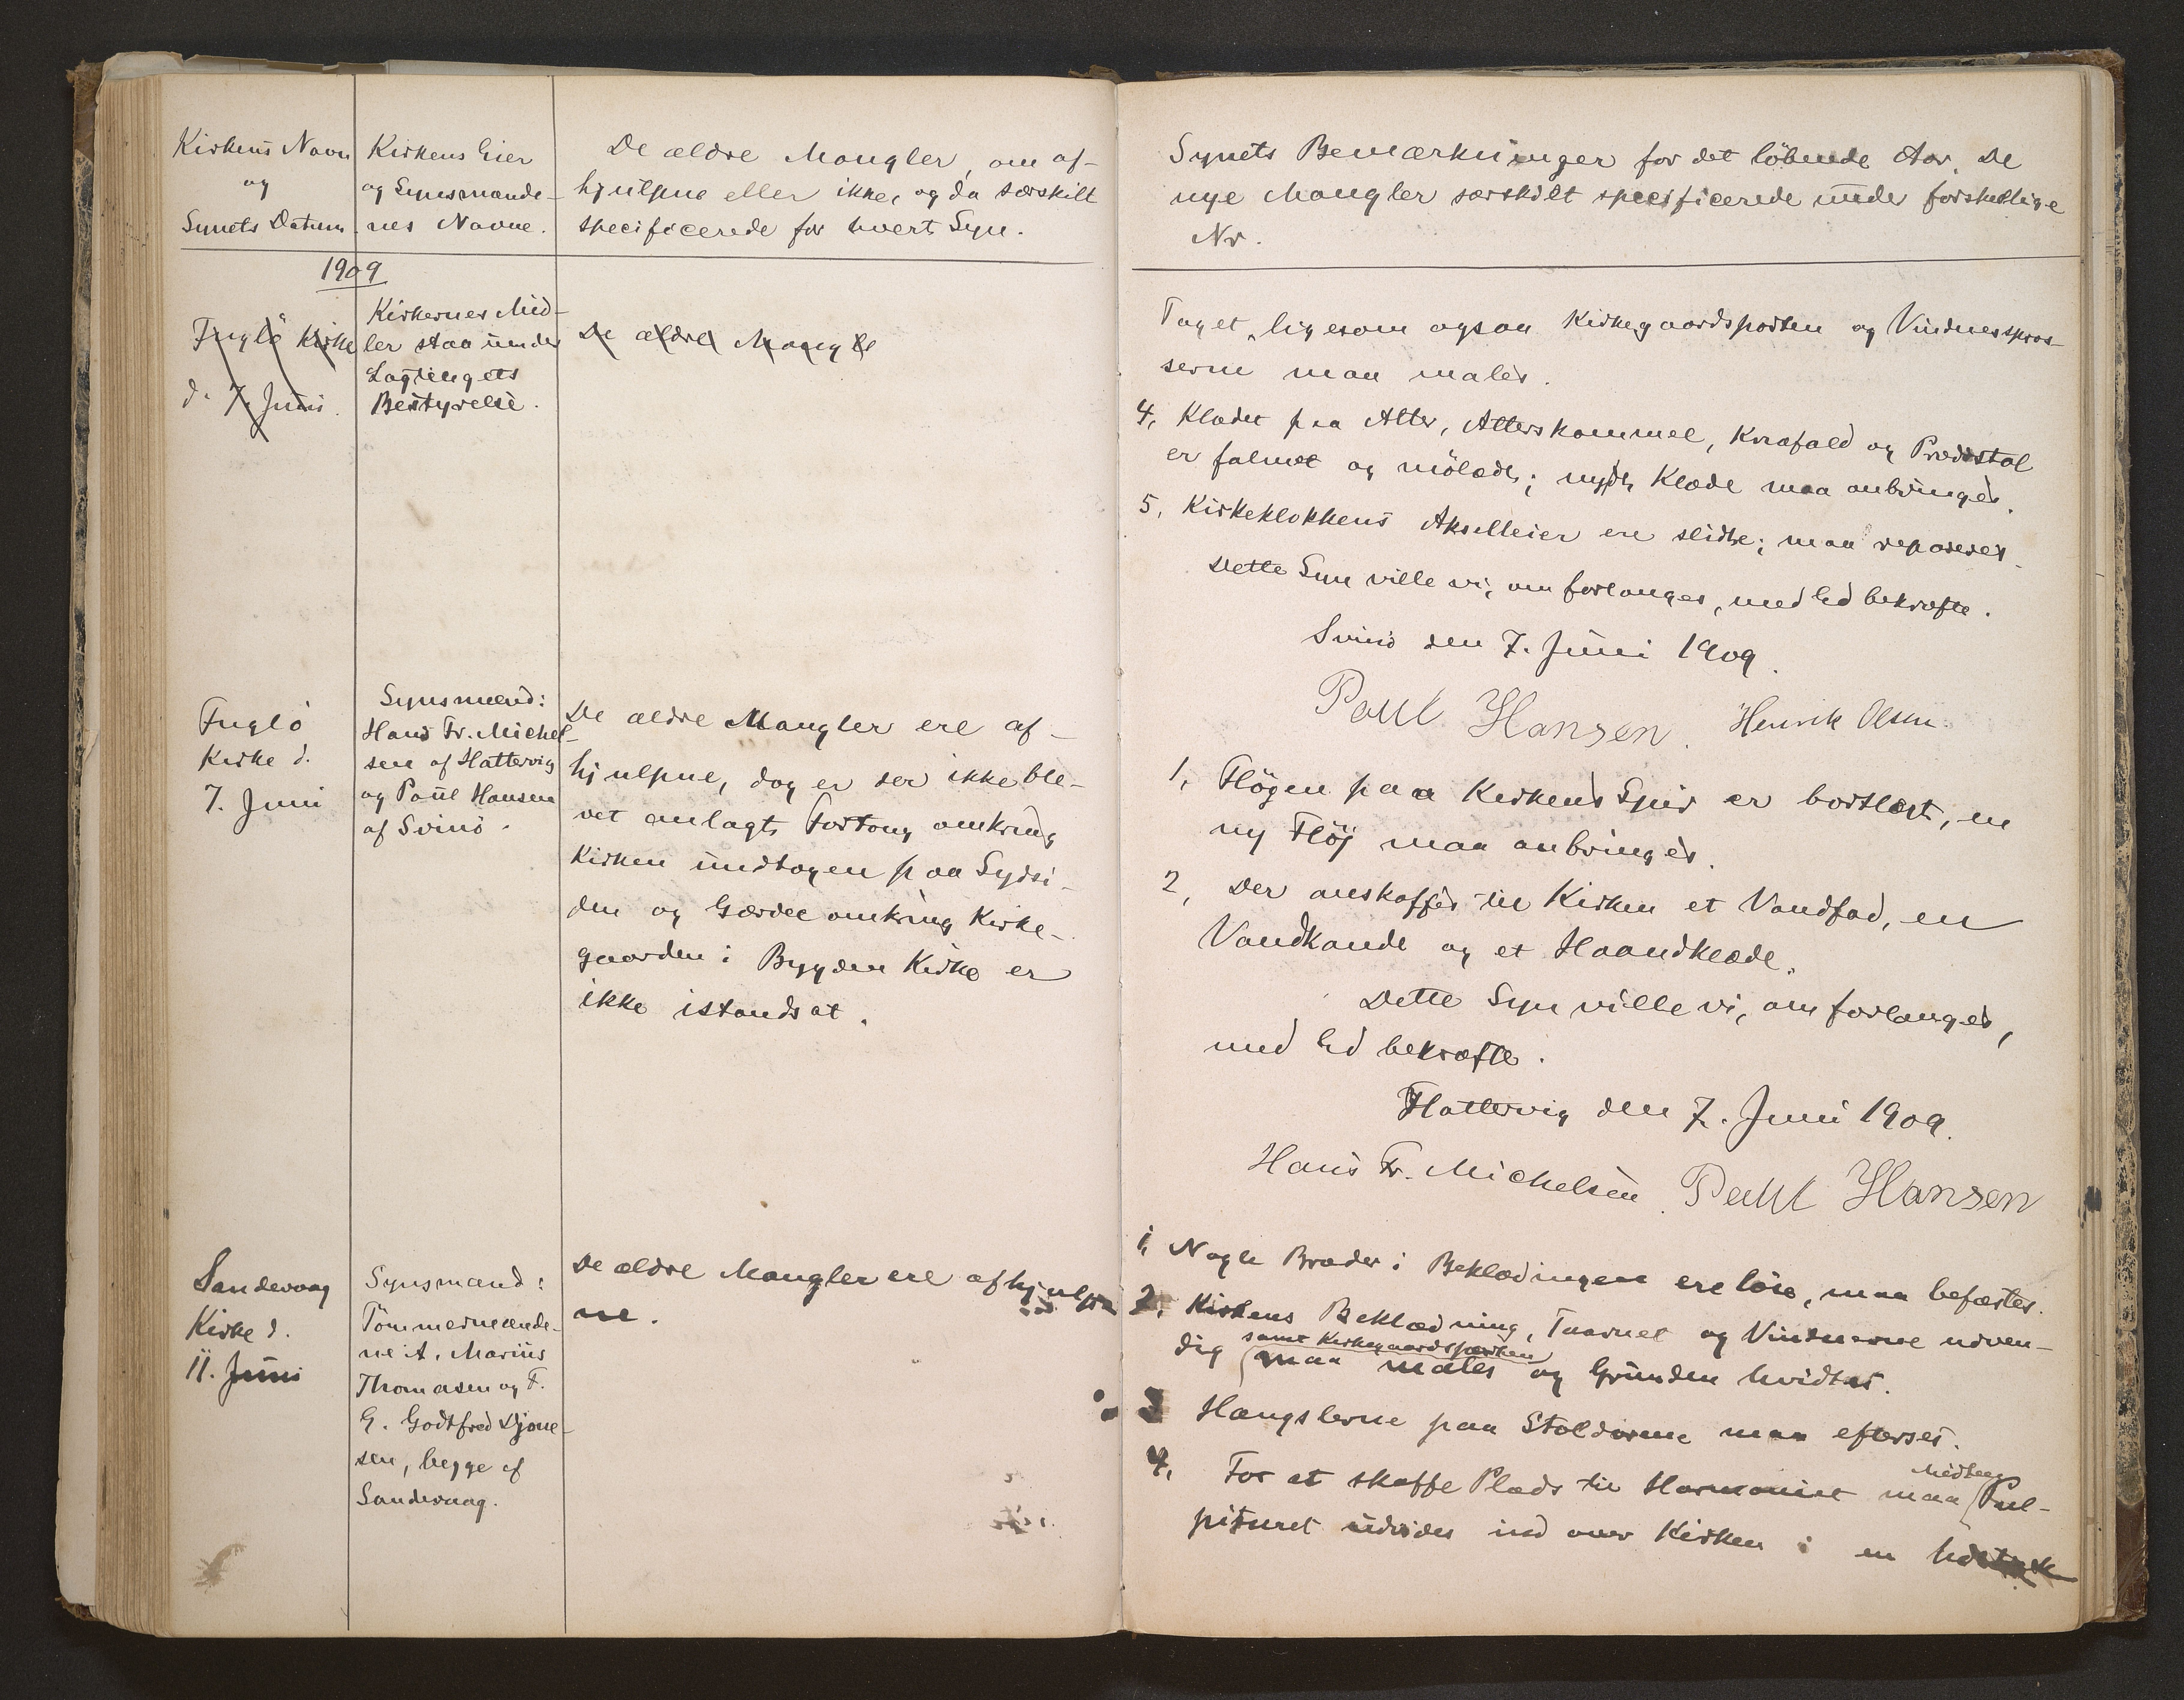 Kirkens Navn
og
Synets Datum
Kirkens Eier
og Synsmænde-
nes Navne.
De ældre Mangler, om af-
hjulpne eller ikke, og da særskilt
specificerede for hvert Syn.
1909
Fuglö Kirke
d. 7. Juni.
Kirkernes Mid-
ler staa under
Lagtingets
Bestyrelse.
De ældre Mangle
Fuglö
Kirke d.
7. Juni
Synsmænd:
Hans Fr. Michel-
sen af Hattervig
og Poul Hansen
af Svinö.
De ældre Mangler ere af-
hjulpne, dog er der ikke ble-
vet anlagt Fortoug omkring
Kirken undtagen paa Sydsi-
den og Gærdet omkring Kirke-
gaarden i Bygden Kirke er
ikke istandsat.
Sandevaag
Kirke d.
11. Juni
Synsmænd:
Tömmermænde-
ne A. Marius
Thomasen og F.
G. Godtfred Djone-
sen, begge af
Sandevaag.
De ældre Mangler ere afhjulp-
ne.
Synets Bemærkninger for det löbende Aar. De
nye Mangler særskilt specificerede under forskellige
Nr.
Taget, ligesom ogsaa Kirkegaardsporten og Vinduesspros-
serne maa males.
4, Klædet paa Alter, Alterskammel, Knæfald og Prædstol
er falmet og mölædt; nyt Klæde maa anbringes.
5, Kirkeklokkens Akselleier ere slidte; maa repareres.
Dette Syn ville vi, om forlanges, med Ed bekræfte.
Svinö den 7. Juni 1909.
Poul Hansen. Henrik Olsen.
1, Flögen paa Kirkens Spir er bortblæst, en
ny Flöj maa anbringes.
2, Der anskaffes til Kirken et Vandfad, en
Vandkande og et Haandklæde.
Dette Syn ville vi, om forlanges,
med Ed bekræfte.
Hattervig den 7. Juni 1909.
Hans Fr. Michelsen. Poul Hansen
1, Nogle Brædder i Beklædningen ere löse, maa befæstes.
2, Kirkens Beklædning, Taarnet og Vinduerne udven-
samt Kirkegaardsporten
dig maa males og Grunden hvidtes.
3 Hængslerne paa Stoldörene maa efterses.
4, For at skaffe Plads til Harmoniet maa Pul-
pituret udvides ind over Kirken i en